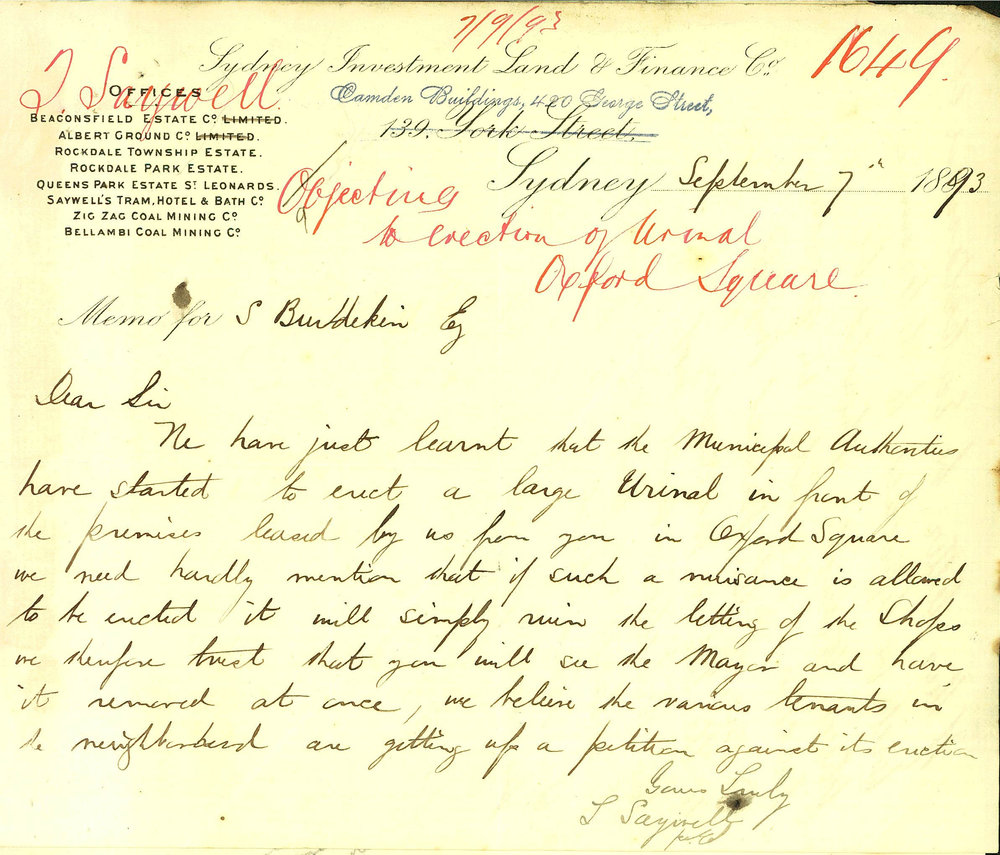 7/9/93
1649.
Sydney Investment Land & Finance Co.
T. Saywell
OFFICES
Camden Buildings, 420 George Street,
139. York Street.
BEACONSFIELD ESTATE CO LIMITED.
ALBERT GROUND CO LIMITED.
ROCKDALE TOWNSHIP ESTATE.
ROCKDALE PARK ESTATE.
QUEENS PARK ESTATE ST LEONARDS.
SAYWELL'S TRAM, HOTEL & BATH CO
ZIG ZAG COAL MINING CO
BELLAMBI COAL MINING CO
Sydney September 7th 1893
Objecting
to erection of Urinal
Oxford Square.
Memo for S Burdekin Esq
Dear Sir
We have just learnt that the Municipal Authorities
have started to erect a large Urinal in front of
the premises leased by us from you in Oxford Square
we need hardly mention that if such a nuisance is allowed
to be erected it will simply ruin the letting of the Shops
we therefore trust that you will see the Mayor and have
it removed at once, we believe the various tenants in
the neighborhood are getting up a petition against its erection
Yours Truly
T Saywell